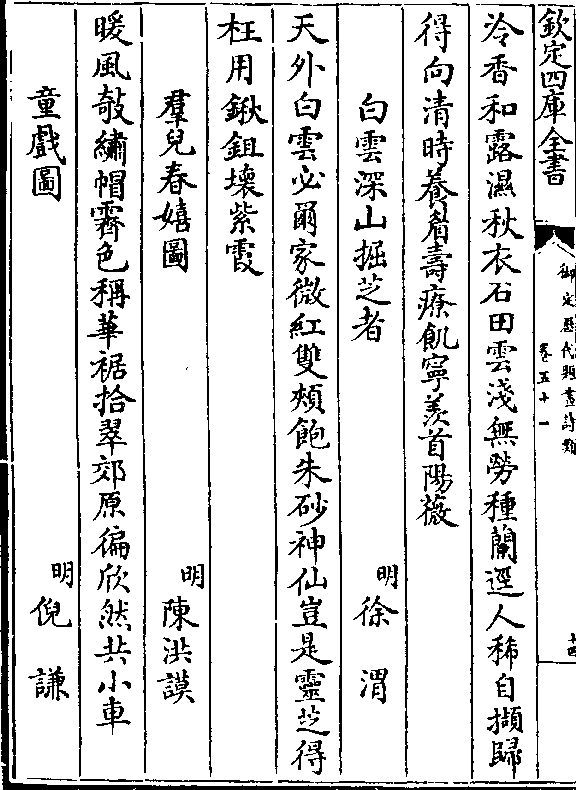 欽定四庫全書
御定歷代題畫詩類
卷五十一
十四
冷香和露濕秋衣石田雲淺無勞種蘭逕人稀自擷歸
得向清時養眉壽療飢寧羨首陽薇
白雲深山掘芝者
明徐渭
天外白雲必爾家微紅雙頰飽朱砂神仙豈是靈芝得
枉用鍬鉏壞紫霞
羣兒春嬉圖
明陳洪謨
暖風攲繡帽霽色稱華裾拾翠郊原徧欣然共小車
童戲圖
明倪謙